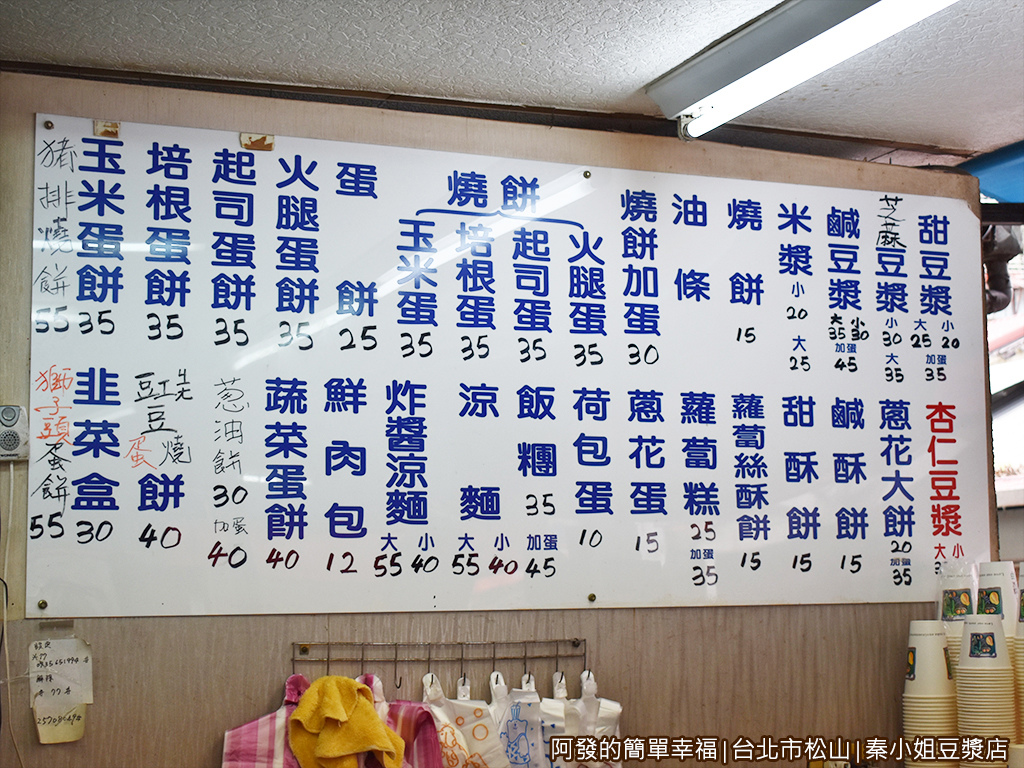 甜豆漿 大25 小20 加蛋35
芝麻豆漿 小30 大35
鹹豆漿 大35 小30 加蛋45
米漿 小20 大25
燒餅 15
油條
燒餅加蛋 30
燒餅
火腿蛋 35
起司蛋 35
培根蛋 35
玉米蛋 35
蛋餅 25
火腿蛋餅 35
起司蛋餅 35
培根蛋餅 35
玉米蛋餅 35
豬排燒餅 55
杏仁豆漿 大 小
蔥花大餅 20 加蛋35
鹹酥餅 15
甜酥餅 15
蘿蔔絲酥餅 15
蘿蔔糕 25 加蛋35
蔥花蛋 15
荷包蛋 10
飯糰 35 加蛋45
涼麵 大55 小40
炸醬涼麵 大55 小40
鮮肉包 12
蔬菜蛋餅 40
蔥油餅 30 加蛋40
餅 40
韭菜盒 30
獅子頭蛋餅 55
阿發的簡單幸福|台北市松山|秦小姐豆漿店